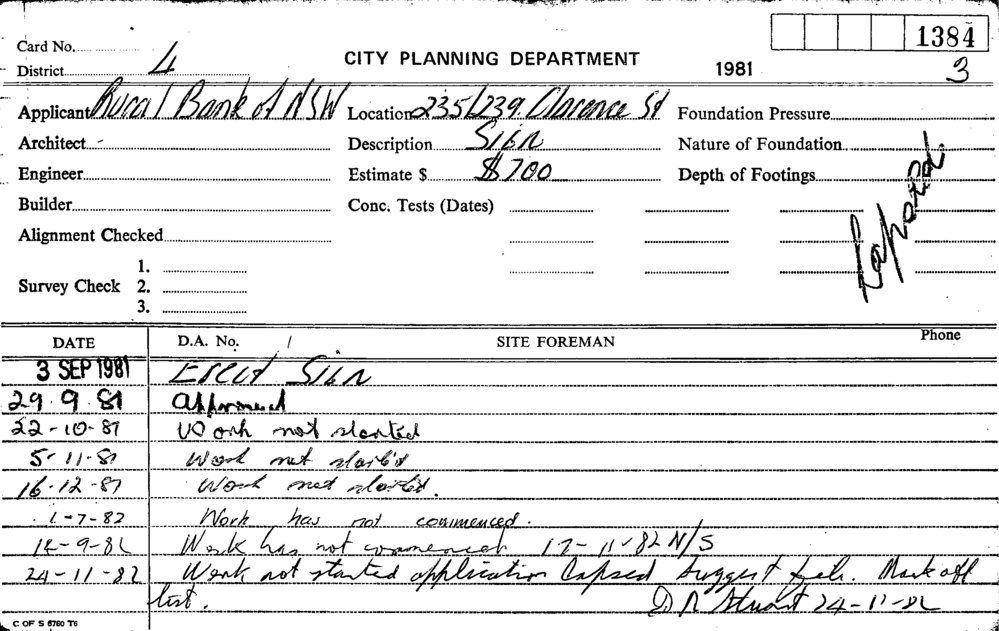 1384
Card No.
CITY PLANNING DEPARTMENT
1981
3
District 4
Applicant Rural Bank of NSW Location 235/239 Clarence St Foundation Pressure
Architect - Description Sign Nature of Foundation
Engineer Estimate $ $700 Depth of Footings
Lapsed
Builder Conc. Tests (Dates)
Alignment Checked
1.
Survey Check 2.
3.
DATE D.A. No. / SITE FOREMAN Phone
3 SEP 1981 Erect Sign
29.9.81 Approved
22-10-81 Work not started
5-11-81 Work not started
16-12-81 Work not started.
1-7-82 Work has not commenced.
14-9-82 Work has not commenced 17-11-82 N/S
24-11-82 Work not started application lapsed suggest file. Mark off
list. D R Stuart 24-11-82
C OF S 6760 T6